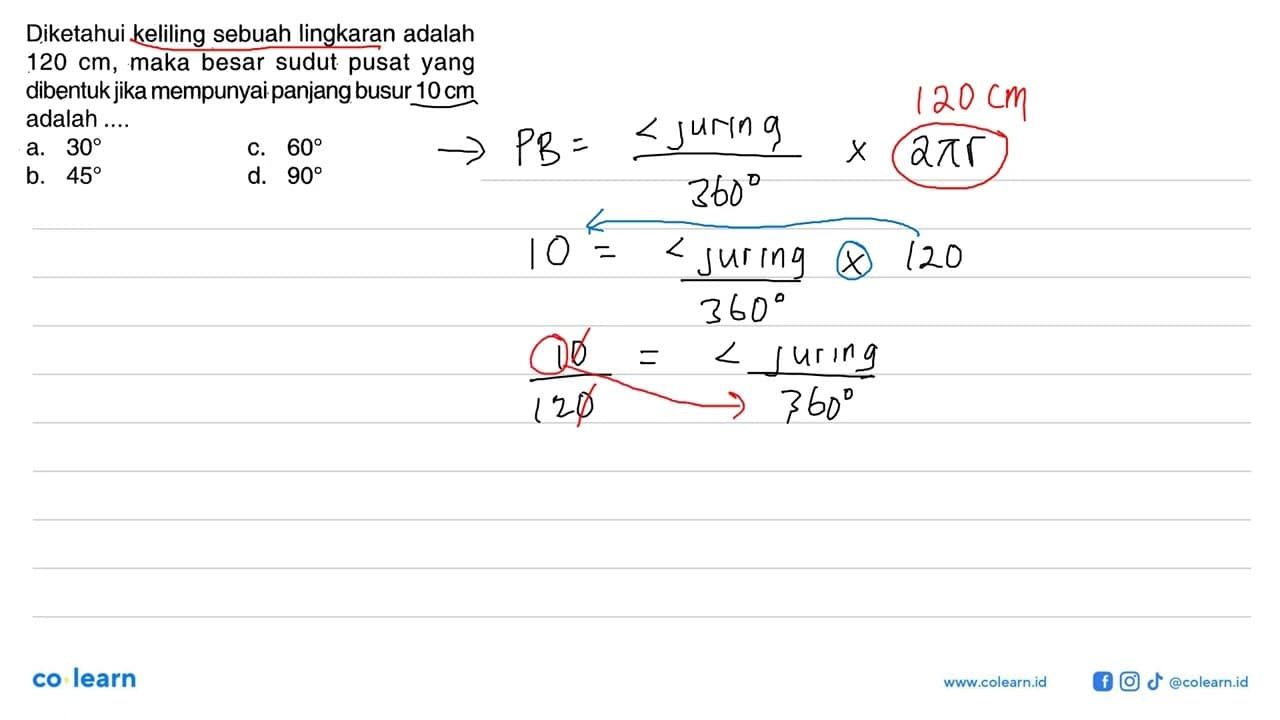 Diketahui keliling sebuah lingkaran adalah
120 cm, maka besar sudut pusat yang
dibentuk jika mempunyai panjang busur 10 cm
adalah ....
a. 30° c. 60°
b. 45° d. 90°
120 cm
→ PB = < juring / 360° x 2πr
10 = < juring / 360° x 120
10 / 120 = < juring / 360°
co·learn
www.colearn.id @colearn.id